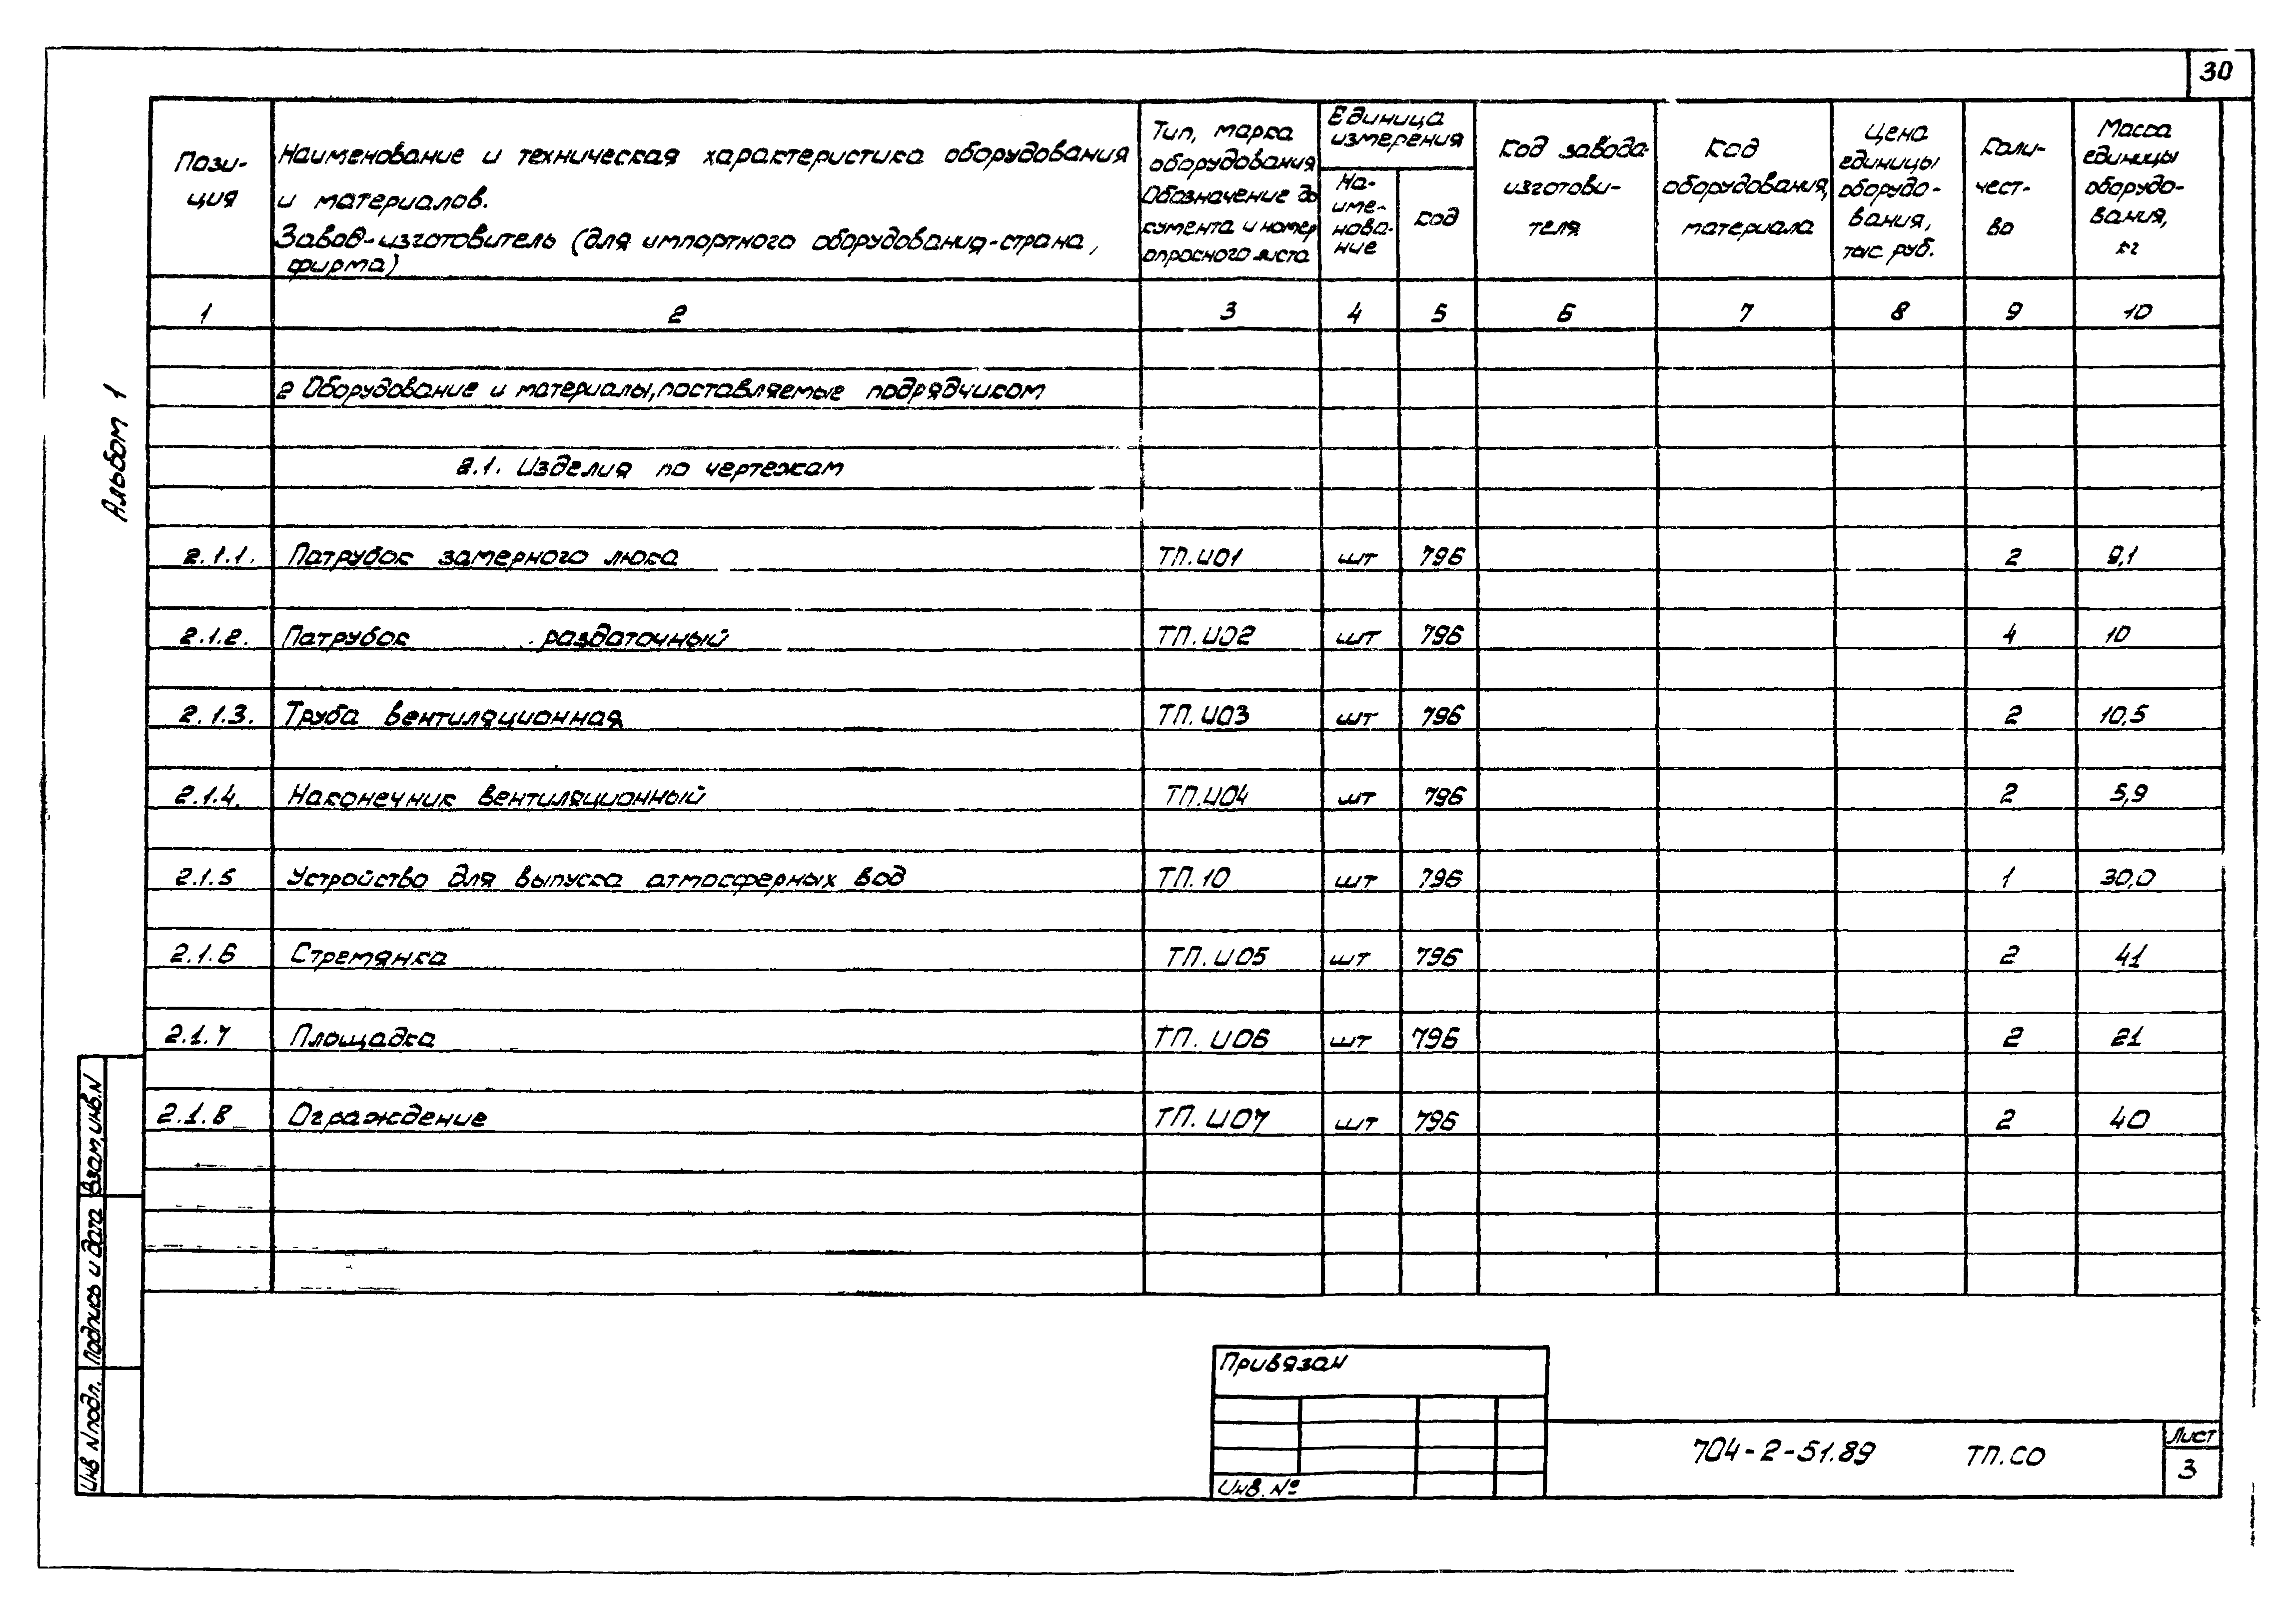 30
Альбом 1
Пози-
ция
Наименование и техническая характеристика оборудования
и материалов.
Завод-изготовитель (для импортного оборудования-страна,
фирма)
Тип, марка
оборудования
Обозначение до
кумента и номер
опросного листа
Единица
измерения
На-
име-
нова-
ние
код
Код завода-
изготови-
теля
Код
оборудования,
материала
Цена
единицы
оборудо-
вания,
тыс руб.
Коли-
чест-
во
Масса
единицы
оборудо-
вания,
кг
1 2 3 4 5 6 7 8 9 10
2 Оборудование и материалы, поставляемые подрядчиком
2.1. Изделия по чертежам
2.1.1. Патрубок замерного люка ТП.И01 шт 796 2 9,1
2.1.2. Патрубок раздаточный ТП.И02 шт 796 4 10
2.1.3. Труба вентиляционная ТП.И03 шт 796 2 10,5
2.1.4. Наконечник вентиляционный ТП.И04 шт 796 2 5,9
2.1.5 Устройство для выпуска атмосферных вод ТП.10 шт 796 1 30,0
2.1.6 Стремянка ТП.И05 шт 796 2 41
2.1.7 Площадка ТП. И06 шт 796 2 21
2.1.8 Ограждение ТП. И07 шт 796 2 40
Взам.инв.N
Подпись и дата
Инв N подл.
Привязан
Инв. №
704-2-51.89 ТП.СО
Лист
3